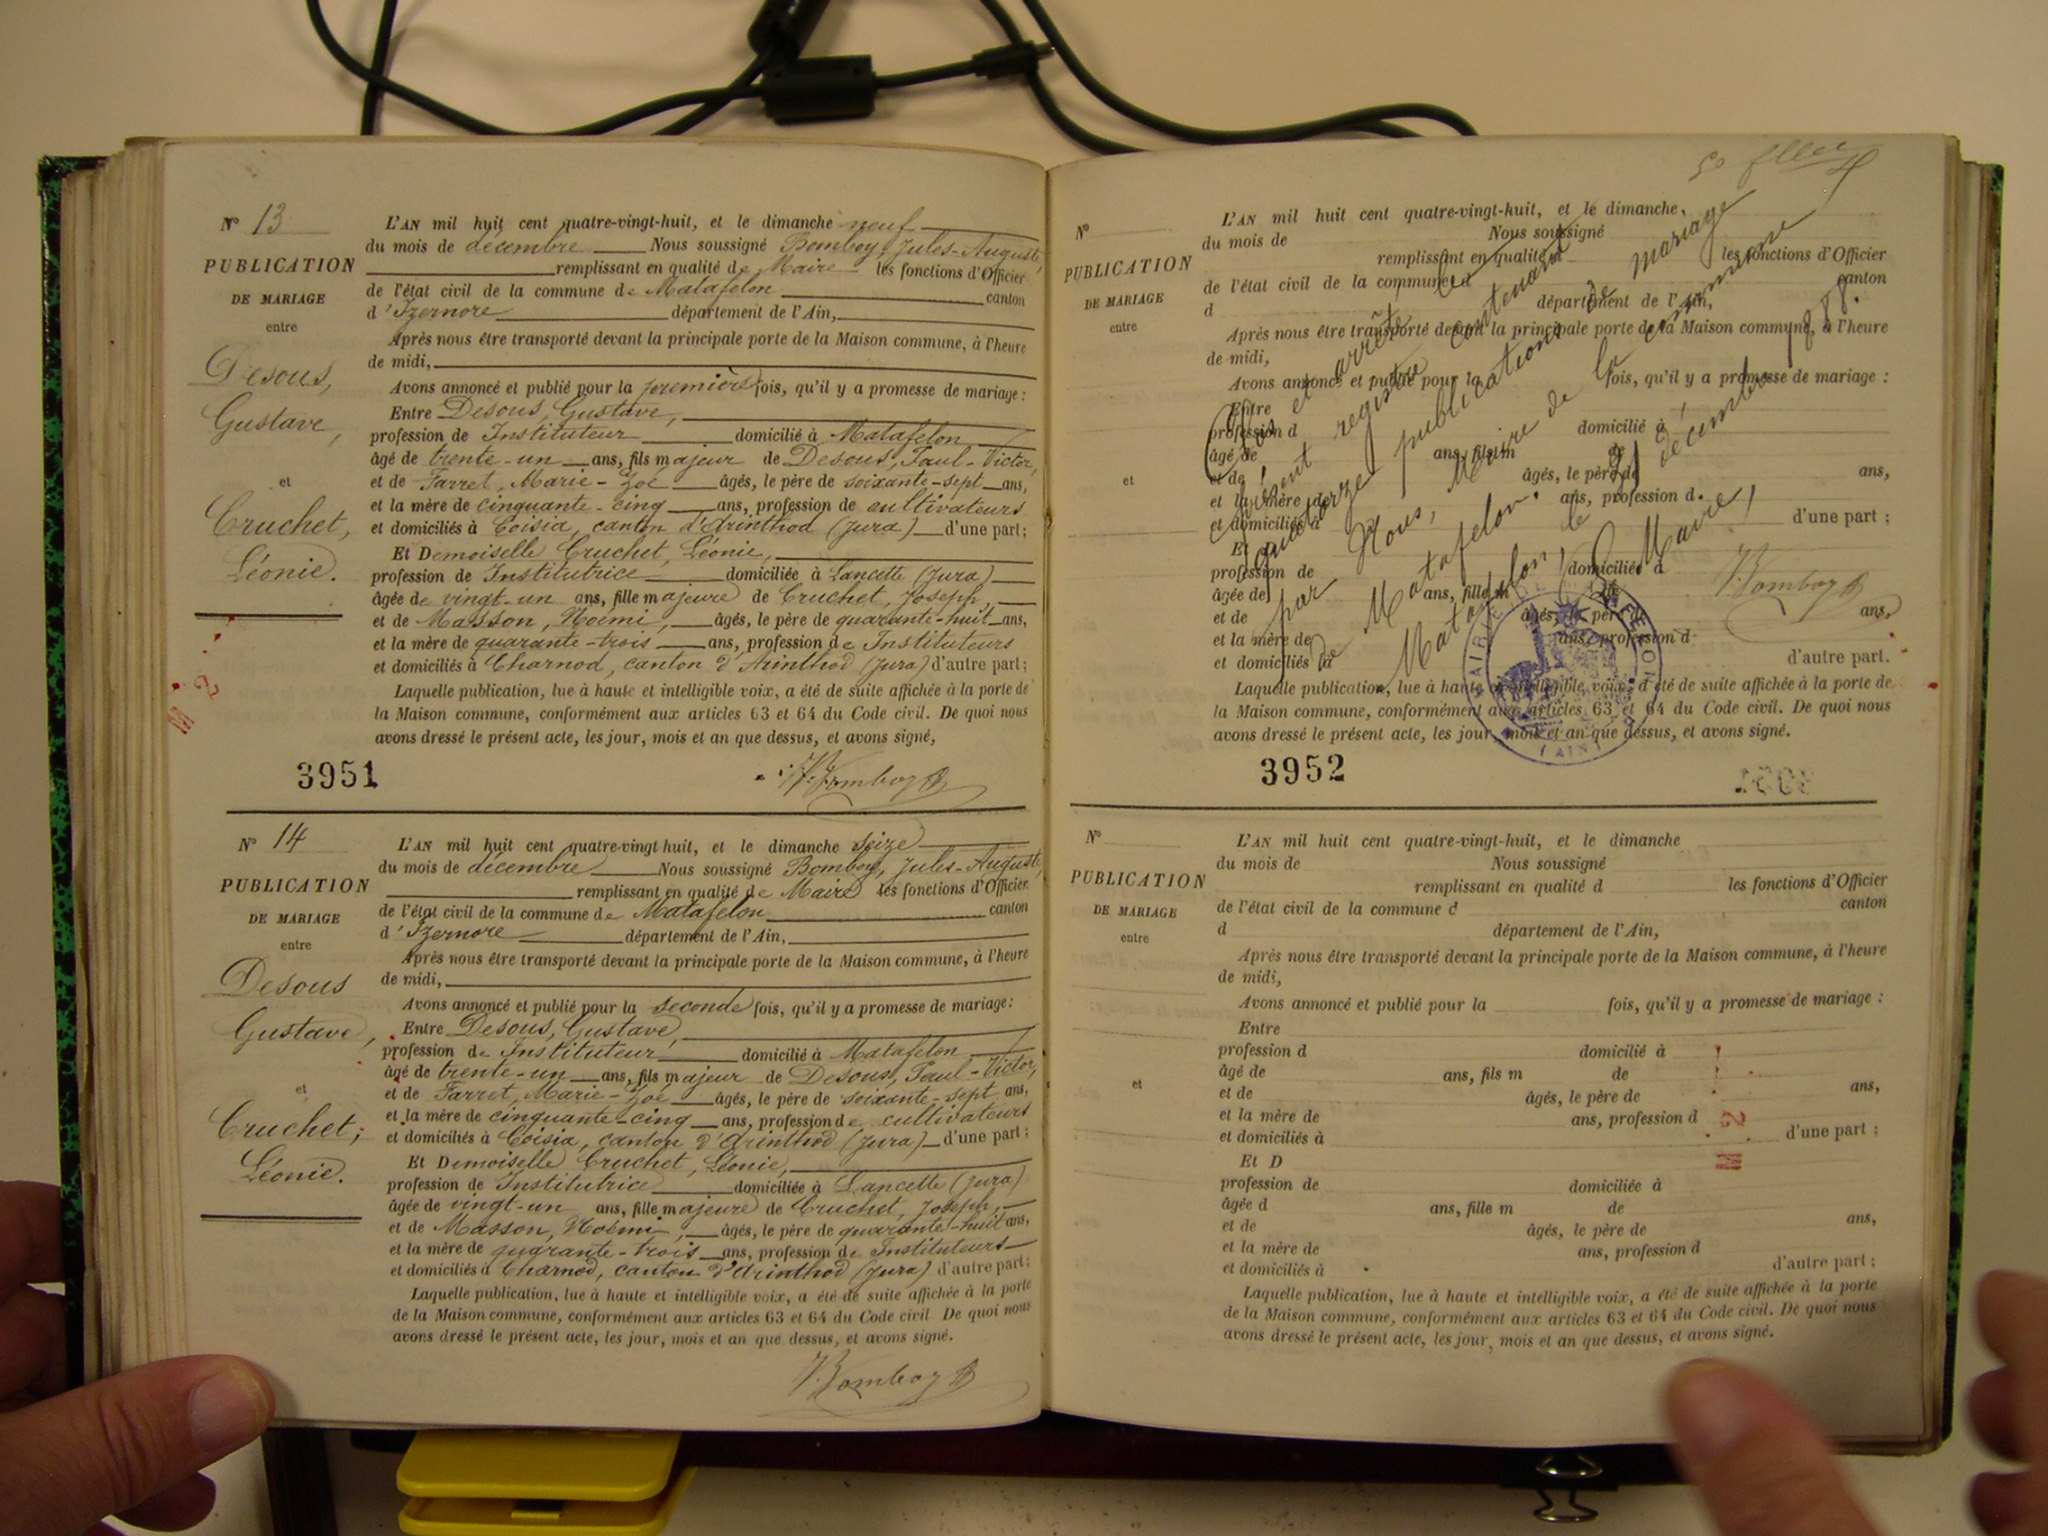 N° 13
PUBLICATION
DE MARIAGE
entre
Desous,
Gustave,
et
Cruchet,
Léonie.
L'AN mil huit cent quatre-vingt-huit, et le dimanche neuf
du mois de décembre Nous soussigné Bomboy, Jules-Auguste,
remplissant en qualité de Maire les fonctions d'Officier
de l'état civil de la commune de Matafelon canton
d'Izernore département de l'Ain,
Après nous être transporté devant la principale porte de la Maison commune, à l'heure
de midi,
Avons annoncé et publié pour la première fois, qu'il y a promesse de mariage :
Entre Desous, Gustave,
profession de Instituteur domicilié à Matafelon
âgé de trente-un ans, fils majeur de Desous, Paul-Victor,
et de Farret, Marie-Zoé âgés, le père de soixante-sept ans,
et la mère de cinquante-cinq ans, profession de cultivateurs
et domiciliés à Coisia, canton d'Arinthod (Jura) d'une part ;
Et Demoiselle Cruchet, Léonie,
profession de Institutrice domiciliée à Lancette (Jura)
âgée de vingt-un ans, fille majeure de Cruchet, Joseph,
et de Masson, Noémi, âgés, le père de quarante-huit ans,
et la mère de quarante-trois ans, profession de Instituteurs
et domiciliés à Charnod, canton d'Arinthod (Jura) d'autre part ;
Laquelle publication, lue à haute et intelligible voix, a été de suite affichée à la porte de
la Maison commune, conformément aux articles 63 et 64 du Code civil. De quoi nous
avons dressé le présent acte, les jour, mois et an que dessus, et avons signé,
3951
J. Bomboy
N° 14
PUBLICATION
DE MARIAGE
entre
Desous
Gustave,
et
Cruchet,
Léonie.
L'AN mil huit cent quatre-vingt huit, et le dimanche seize
du mois de décembre Nous soussigné Bomboy, Jules-Auguste,
remplissant en qualité de Maire les fonctions d'Officier
de l'état civil de la commune de Matafelon canton
d'Izernore département de l'Ain,
Après nous être transporté devant la principale porte de la Maison commune, à l'heure
de midi,
Avons annoncé et publié pour la seconde fois, qu'il y a promesse de mariage :
Entre Desous, Gustave,
profession de Instituteur domicilié à Matafelon
âgé de trente-un ans, fils majeur de Desous, Paul-Victor,
et de Farret, Marie-Zoé âgés, le père de soixante-sept ans,
et la mère de cinquante-cinq ans, profession de cultivateurs
et domiciliés à Coisia, canton d'Arinthod (Jura) d'une part ;
Et Demoiselle Cruchet, Léonie,
profession de Institutrice domiciliée à Lancette (Jura)
âgée de vingt-un ans, fille majeure de Cruchet, Joseph,
et de Masson, Noémi, âgés, le père de quarante-huit ans,
et la mère de quarante-trois ans, profession de Instituteurs
et domiciliés à Charnod, canton d'Arinthod (Jura) d'autre part ;
Laquelle publication, lue à haute et intelligible voix, a été de suite affichée à la porte
de la Maison commune, conformément aux articles 63 et 64 du Code civil De quoi nous
avons dressé le présent acte, les jour, mois et an que dessus, et avons signé.
J. Bomboy
N°
PUBLICATION
DE MARIAGE
entre
et
L'AN mil huit cent quatre-vingt-huit, et le dimanche,
du mois de Nous soussigné
remplissant en qualité les fonctions d'Officier
de l'état civil de la commune d canton
d département de l'Ain,
Après nous être transporté devant la principale porte de la Maison commune, à l'heure
de midi,
Avons annoncé et publié pour la fois, qu'il y a promesse de mariage :
Entre
profession d domicilié à
âgé de ans, fils m de
et de âgés, le père de ans,
et la mère de ans, profession d
et domiciliés à d'une part ;
Et D
profession de domiciliée à
âgée d ans, fille m de
et de âgés, le père de ans,
et la mère de ans, profession d
et domiciliés à d'autre part.
Laquelle publication, lue à haute et intelligible voix, a été de suite affichée à la porte de
la Maison commune, conformément aux articles 63 et 64 du Code civil. De quoi nous
avons dressé le présent acte, les jour, mois et an que dessus, et avons signé.
Clos et arrêté, le
présent registre contenant
quatorze publications de mariage
par Nous, Maire de la commune
de Matafelon.
Matafelon, le 31 décembre 1888.
Le Maire,
J. Bomboy
MAIRIE DE MATAFELON
(AIN)
3952
N°
PUBLICATION
DE MARIAGE
entre
et
L'AN mil huit cent quatre-vingt-huit, et le dimanche
du mois de Nous soussigné
remplissant en qualité d les fonctions d'Officier
de l'état civil de la commune d canton
d département de l'Ain,
Après nous être transporté devant la principale porte de la Maison commune, à l'heure
de midi,
Avons annoncé et publié pour la fois, qu'il y a promesse de mariage :
Entre
profession d domicilié à
âgé de ans, fils m de
et de âgés, le père de ans,
et la mère de ans, profession d
et domiciliés à d'une part ;
Et D
profession de domiciliée à
âgée d ans, fille m de
et de âgés, le père de ans,
et la mère de ans, profession d
et domiciliés à d'autre part ;
Laquelle publication, lue à haute et intelligible voix, a été de suite affichée à la porte
de la Maison commune, conformément aux articles 63 et 64 du Code civil. De quoi nous
avons dressé le présent acte, les jour, mois et an que dessus, et avons signé.